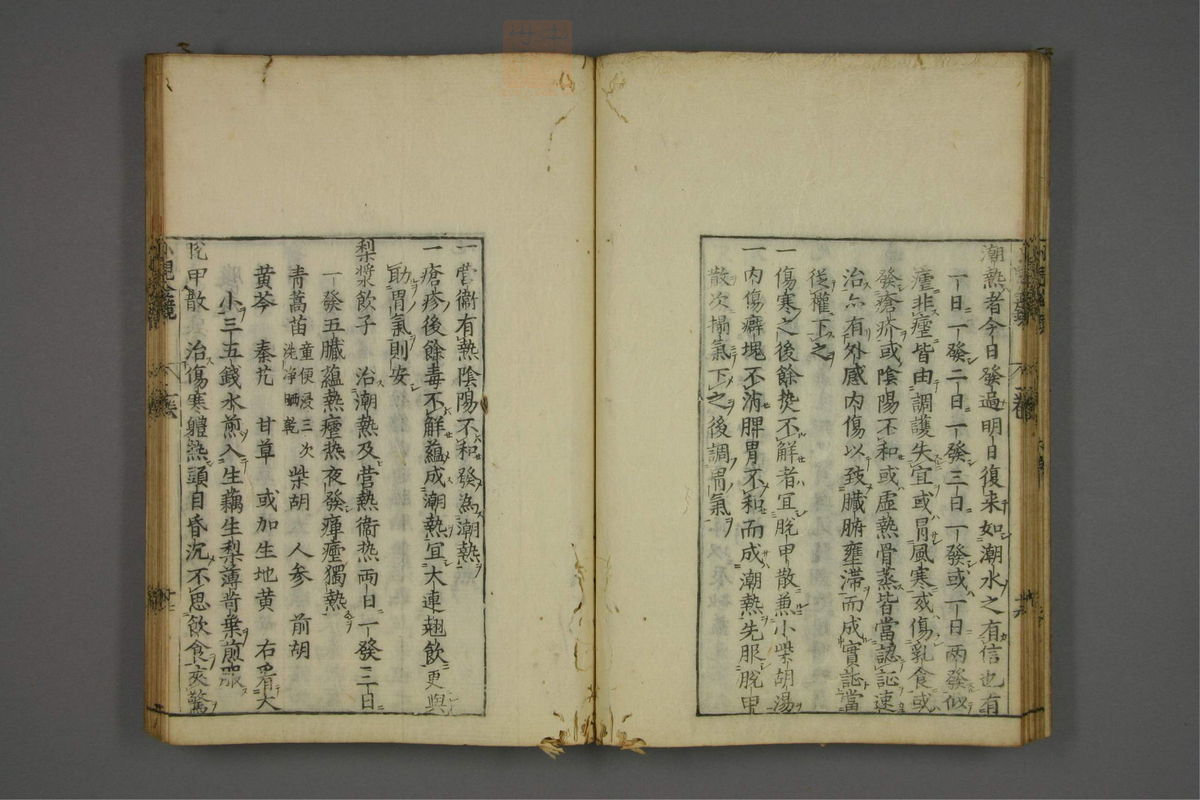 潮熱者今日發過明日復来如潮水之有信也有
一日一發二日一發三日一發或一日兩發似
瘧非瘧皆由調護失宜或冐風寒或傷乳食或
發瘡疥或陰陽不和或虚熱骨蒸皆當認証速
治亦有外感内傷以致臟腑壅滞而成實証當
從權下之
一傷寒之後餘热不解者宜脫甲散兼小柴胡湯
一内傷癖塊不消脾胃不和而成潮熱先服脫甲
散次揚氣下之後調胃氣
一営衞有熱陰陽不和發為潮熱
一瘡疹後餘毒不觧藴成潮熱宜大連翘飲更與
助胃氣則安
梨漿飲子 治潮熱及営熱衞热兩日一發三日
一發五臟藴熱瘧热夜發瘅瘧獨熱
青蒿苗 童便浸三次 柴胡 人參 前胡
洗净晒乾
黄芩 秦艽 甘草 或加生地黄 右看大
小三五錢水煎入生藕生梨薄苛葉煎服
脫甲散 治傷寒軆热頭目昏沉不思飲食夾驚